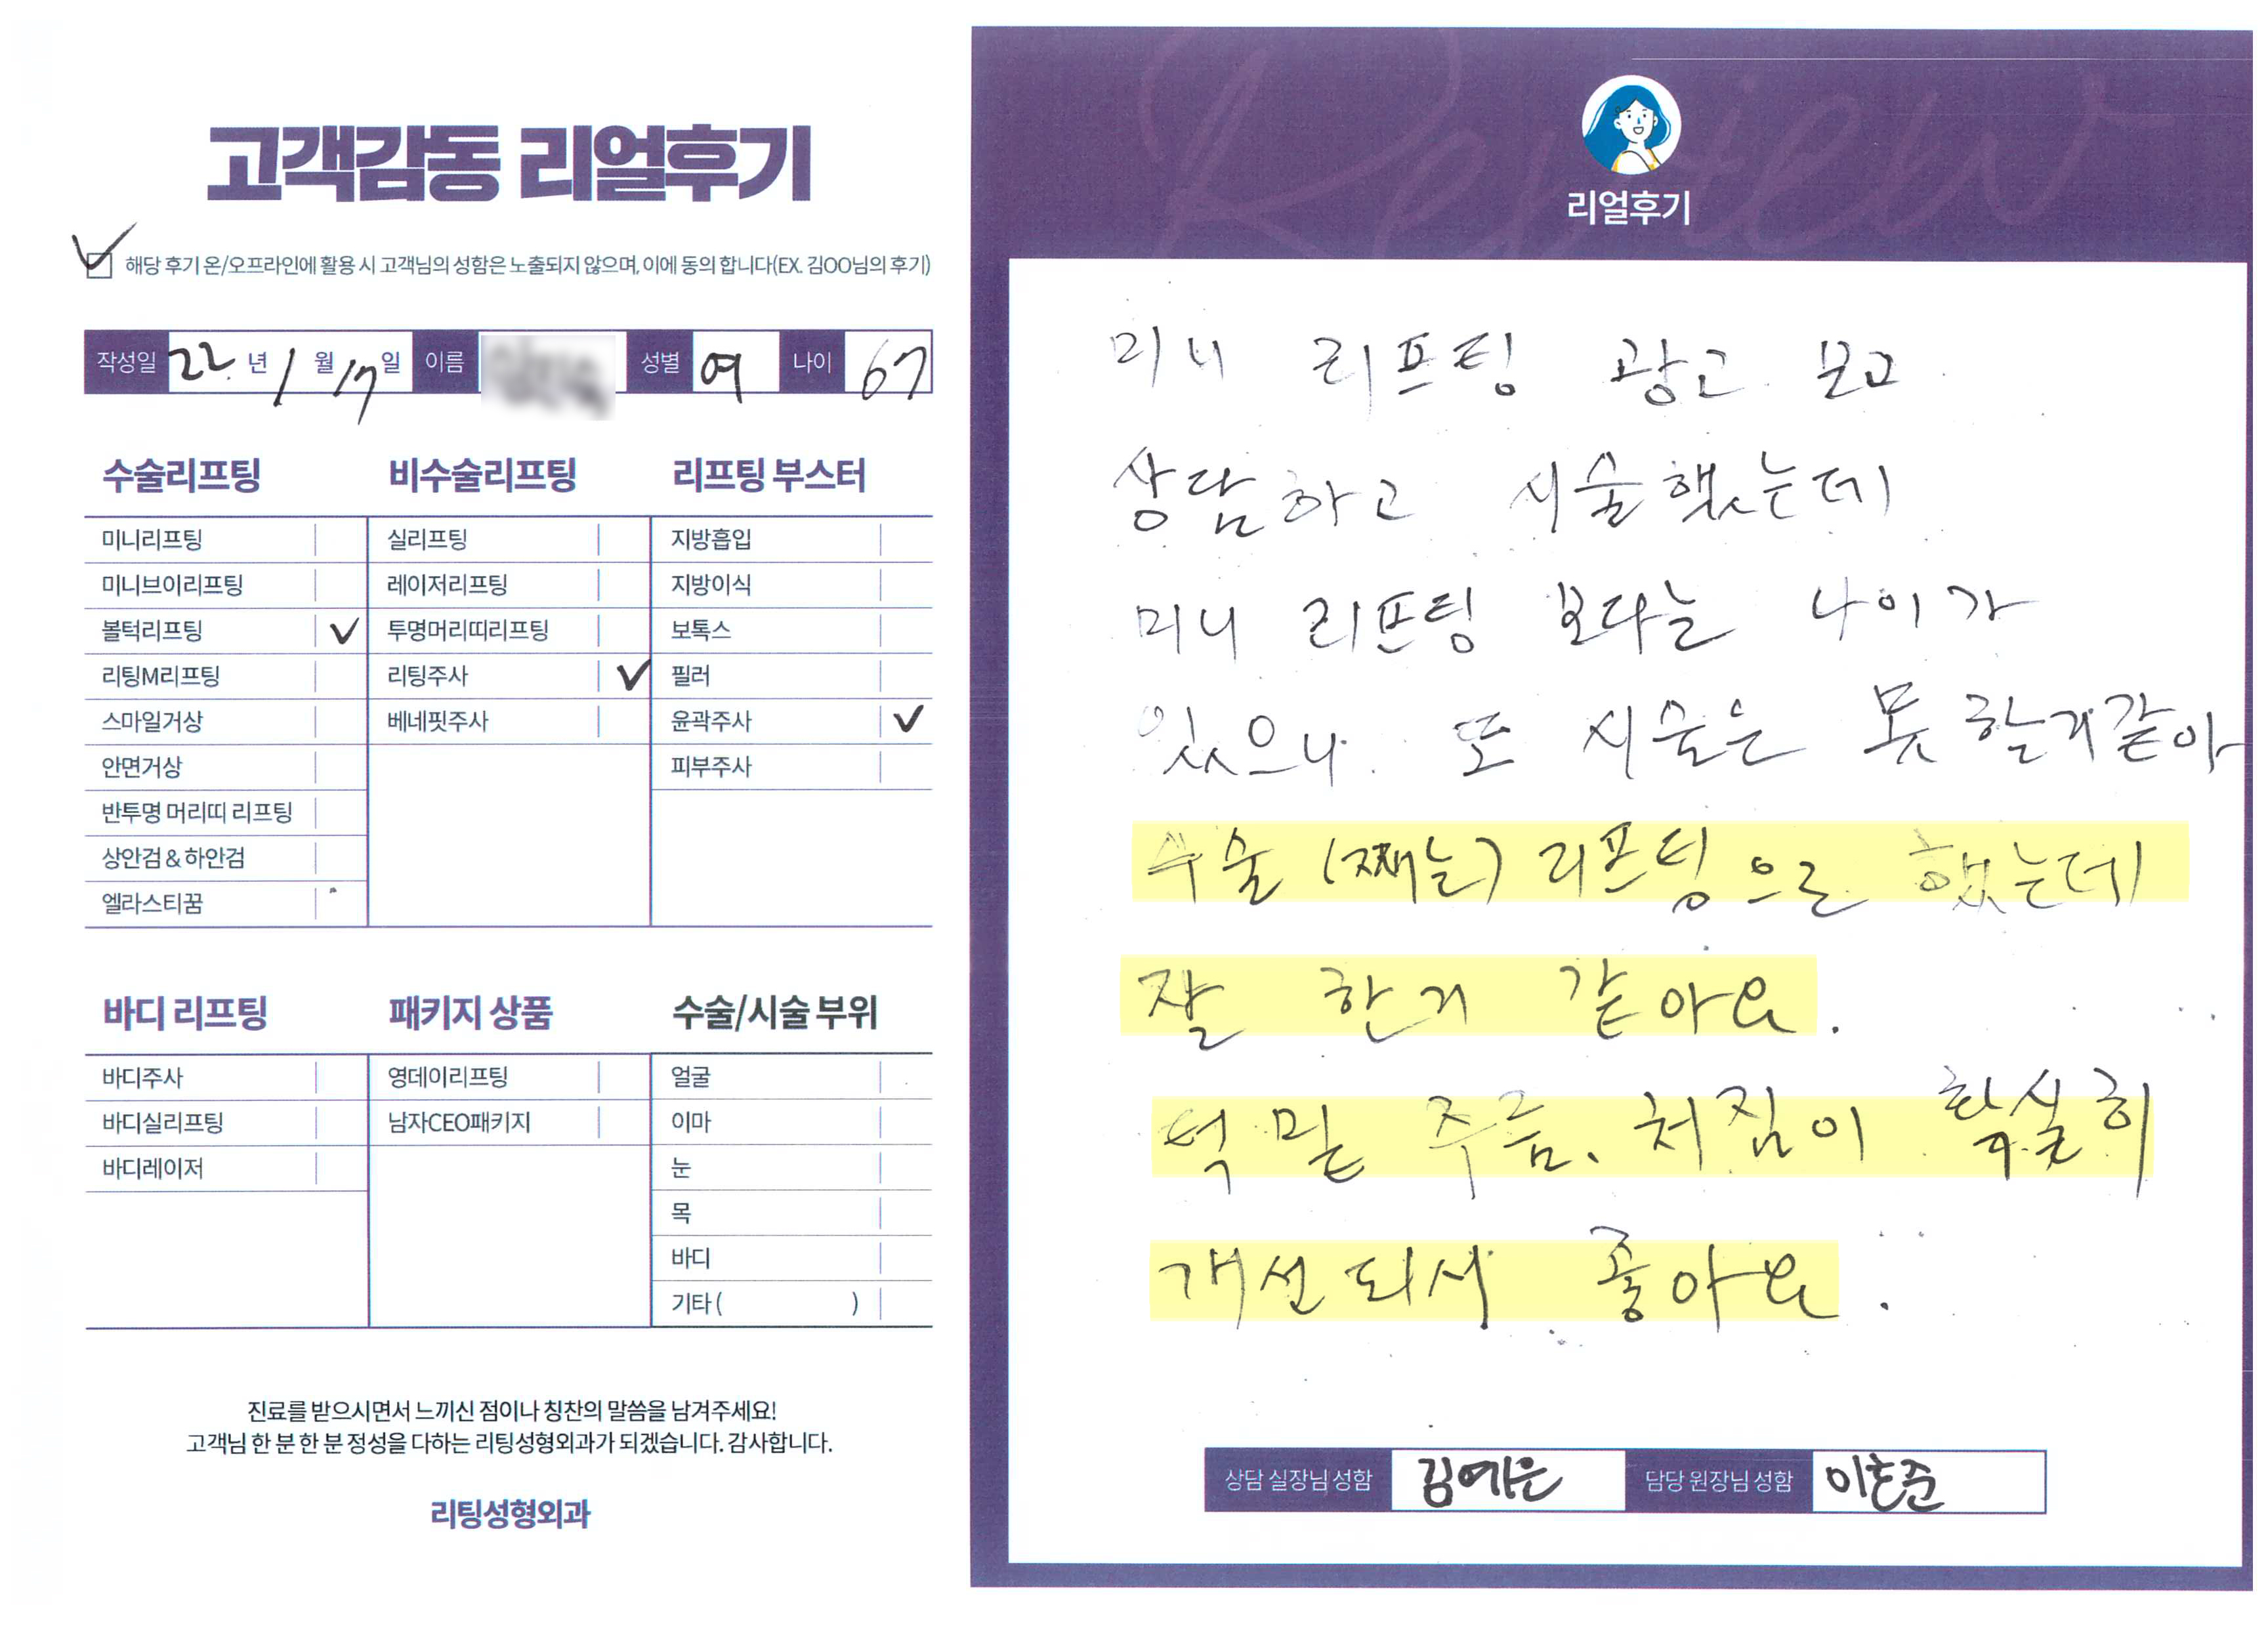 고객감동 리얼후기
✓ 해당 후기 온/오프라인에 활용 시 고객님의 성함은 노출되지 않으며, 이에 동의 합니다(EX. 김OO님의 후기)
작성일 22년 1월 17일 이름 성별 여 나이 67
수술리프팅 비수술리프팅 리프팅 부스터
미니리프팅 실리프팅 지방흡입
미니브이리프팅 레이저리프팅 지방이식
볼턱리프팅 ✓ 투명머리띠리프팅 보톡스
리팅M리프팅 리팅주사 ✓ 필러
스마일거상 베네핏주사 윤곽주사 ✓
안면거상 피부주사
반투명 머리띠 리프팅
상안검 & 하안검
엘라스티꿈
바디 리프팅 패키지 상품 수술/시술 부위
바디주사 영데이리프팅 얼굴
바디실리프팅 남자CEO패키지 이마
바디레이저 눈
목
바디
기타 ( )
진료를 받으시면서 느끼신 점이나 칭찬의 말씀을 남겨주세요!
고객님 한 분 한 분 정성을 다하는 리팅성형외과가 되겠습니다. 감사합니다.
리팅성형외과
Review
리얼후기
미니 리프팅 광고 보고
상담하고 시술했는데
미니 리프팅 보다는 나이가
있으니 또 시술은 못 할거같아
수술 (째는) 리프팅으로 했는데
잘 한거 같아요.
턱 밑 주름, 처짐이 확실히
개선되서 좋아요.
상담 실장님 성함 김예은 담당 원장님 성함 이호준